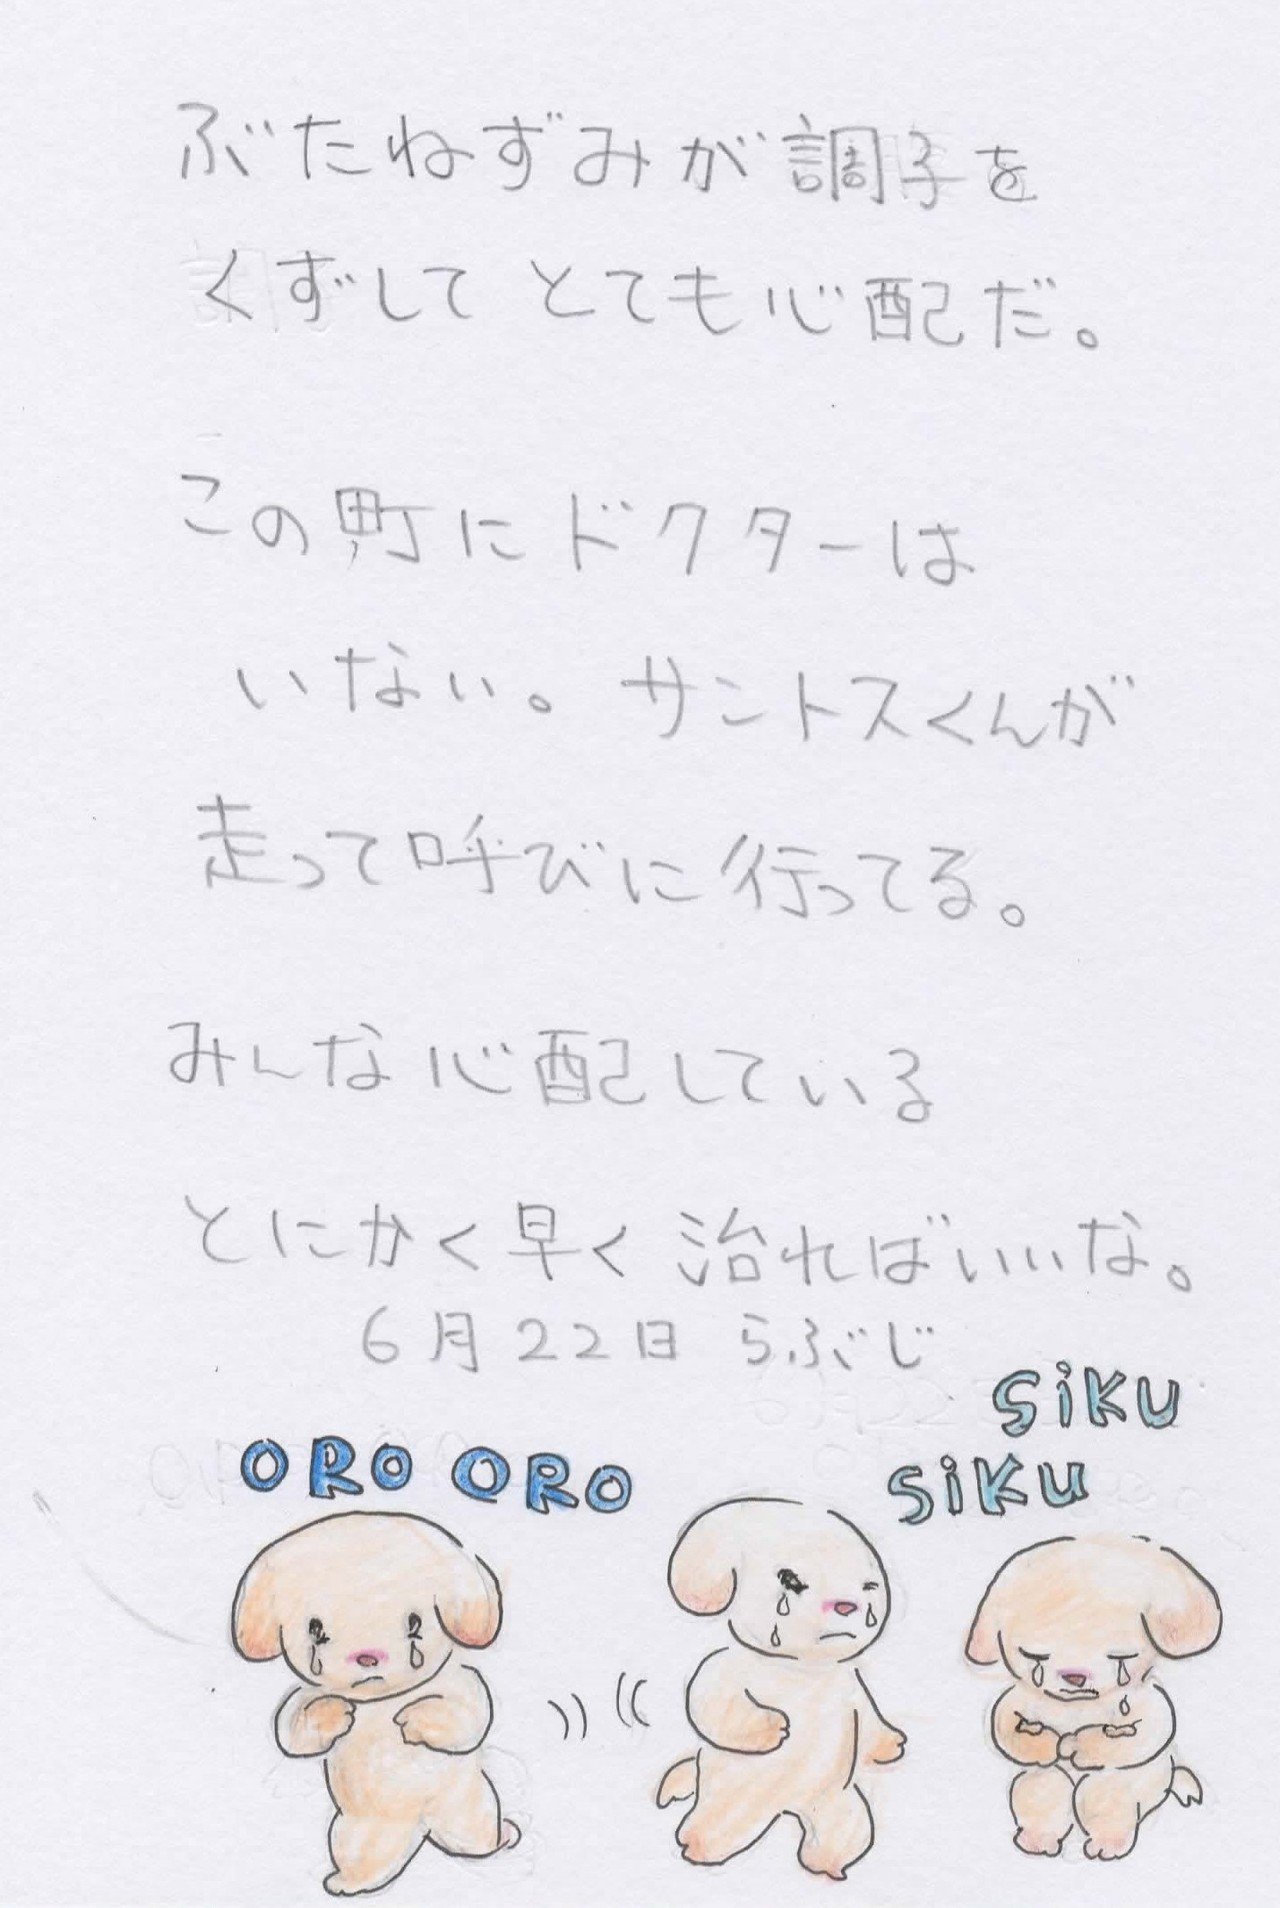 ぶたねずみが調子を
くずしてとても心配だ。
この町にドクターは
いない。サントスくんが
走って呼びに行ってる。
みんな心配している
とにかく早く治ればいいな。
6月22日 らぶじ
SiKU
ORO ORO
SiKU